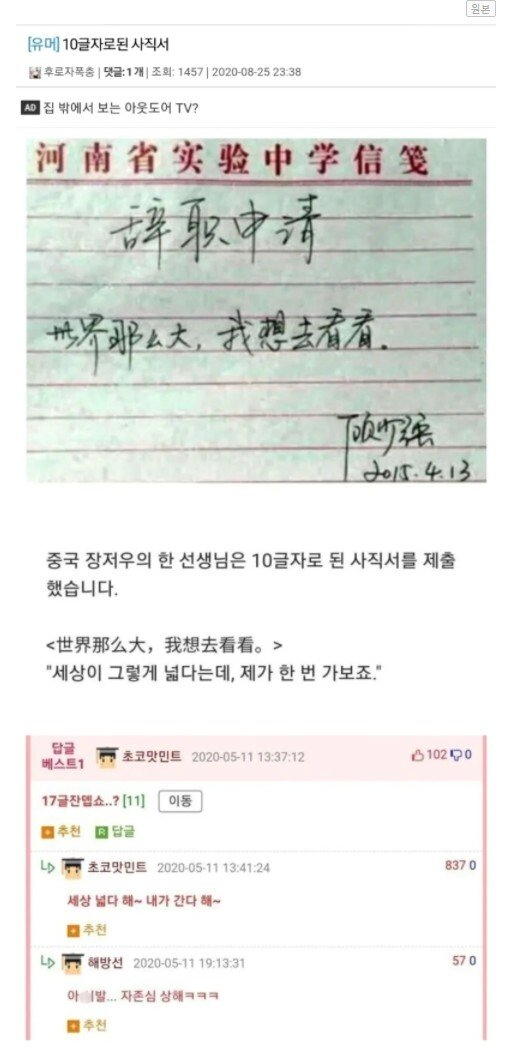 원본
[유머] 10글자로된 사직서
후로자폭충 | 댓글: 1 개 | 조회: 1457 | 2020-08-25 23:38
AD 집 밖에서 보는 아웃도어 TV?
河南省实验中学信笺
辞职申请
世界那么大，我想去看看.
顾少强
2015.4.13
중국 장저우의 한 선생님은 10글자로 된 사직서를 제출
했습니다.
<世界那么大，我想去看看。>
"세상이 그렇게 넓다는데, 제가 한 번 가보죠."
답글
베스트1
초코맛민트 2020-05-11 13:37:12 102 0
17글잔뎁쇼..? [11] 이동
추천 R 답글
초코맛민트 2020-05-11 13:41:24 837 0
세상 넓다 해~ 내가 간다 해~
추천
해방선 2020-05-11 19:13:31 57 0
아 발... 자존심 상해ㅋㅋㅋ
추천